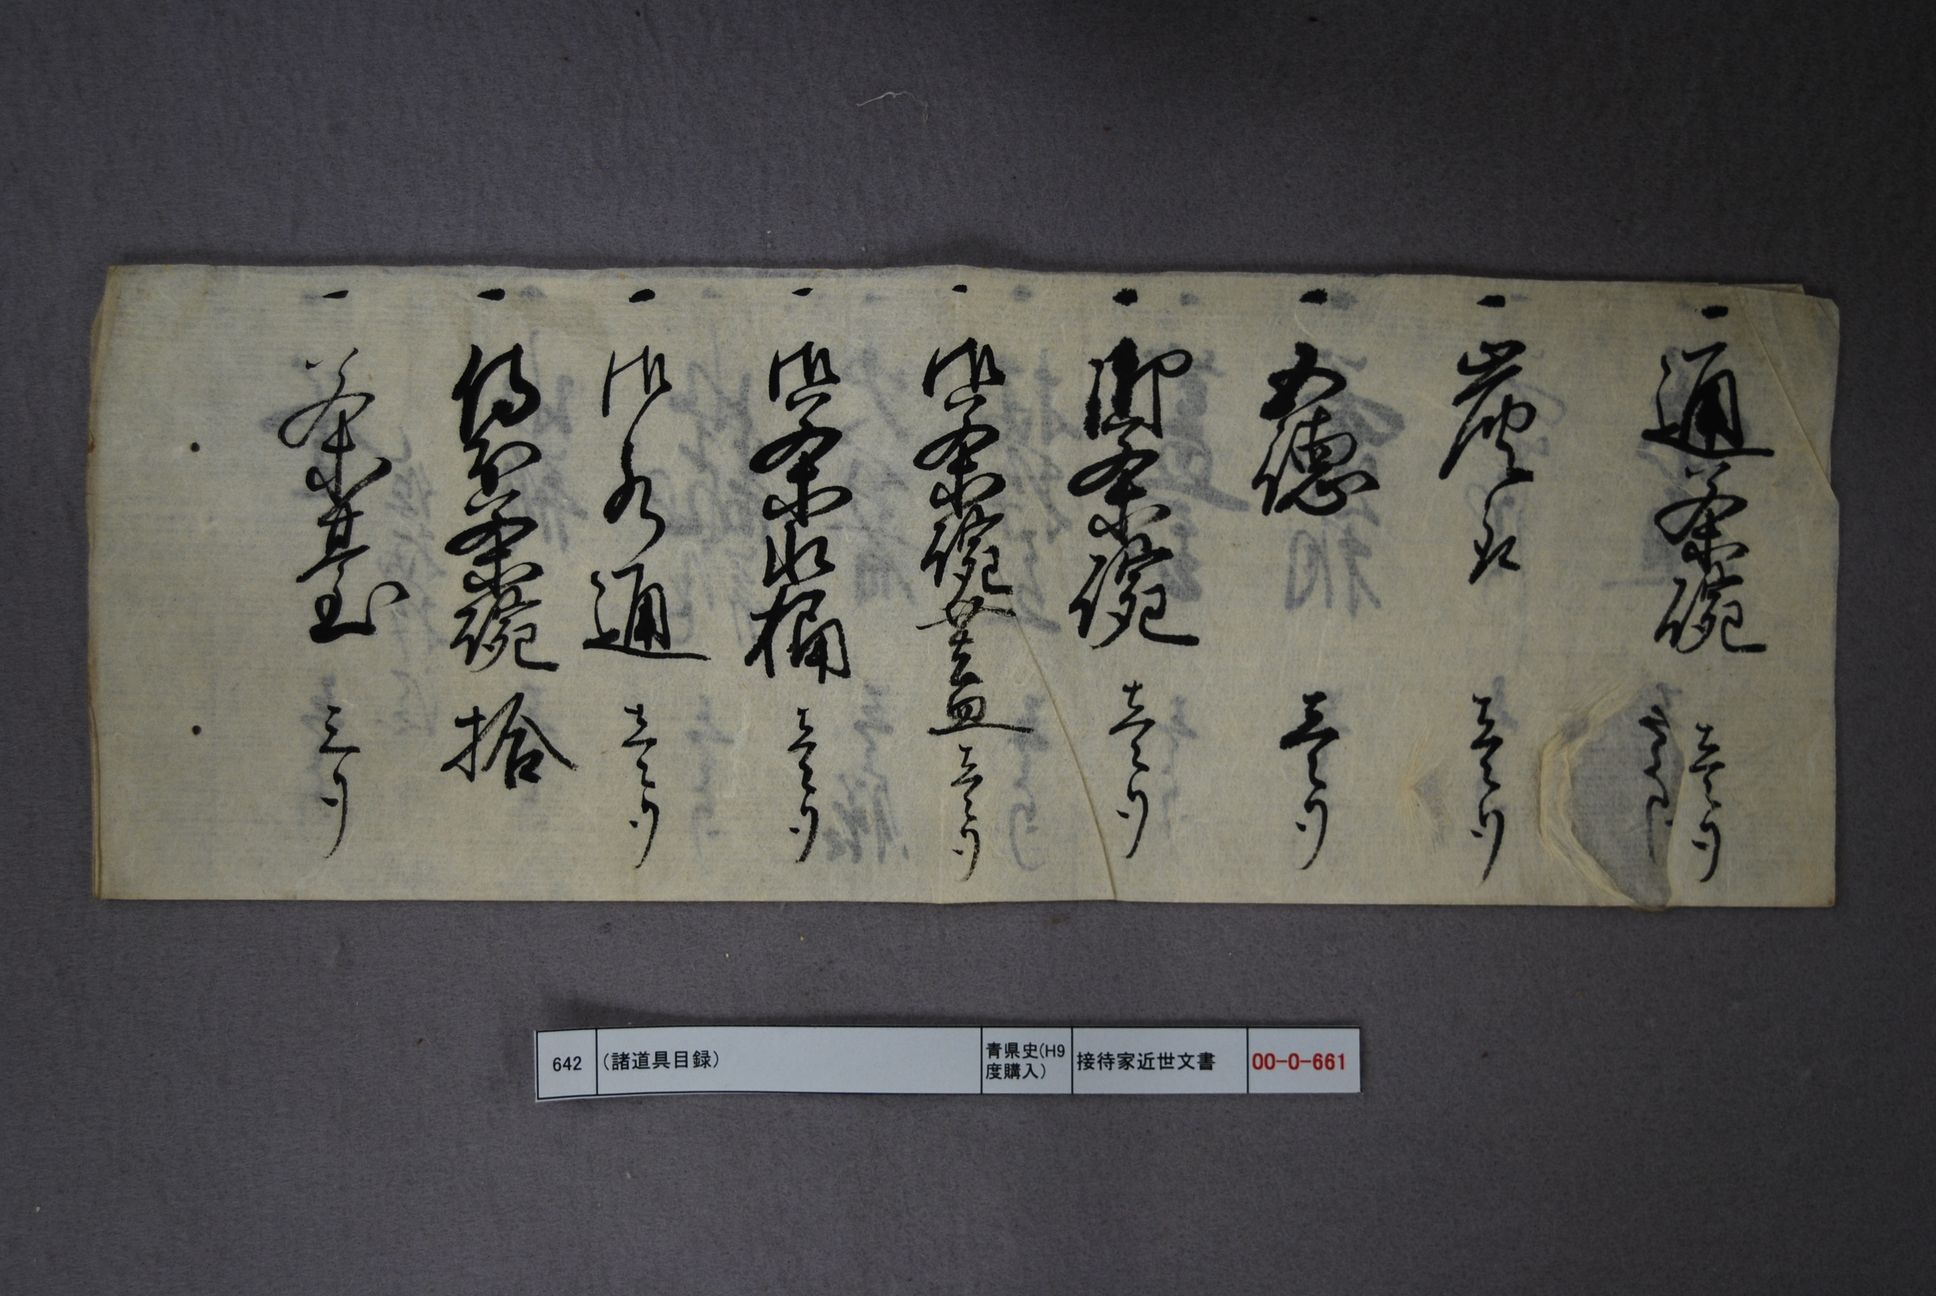 一 通茶碗 壱ツ
一 炭取 壱ツ
一 五徳 壱ツ
一 御茶碗 壱ツ
一 御茶碗 蓋 壱ツ
一 御茶水桶 壱ツ
一 御水通 壱ツ
一 茶碗 拾
一 茶臺 三ツ
642
(諸道具目録)
青県史(H9
度購入)
接待家近世文書
00-0-661